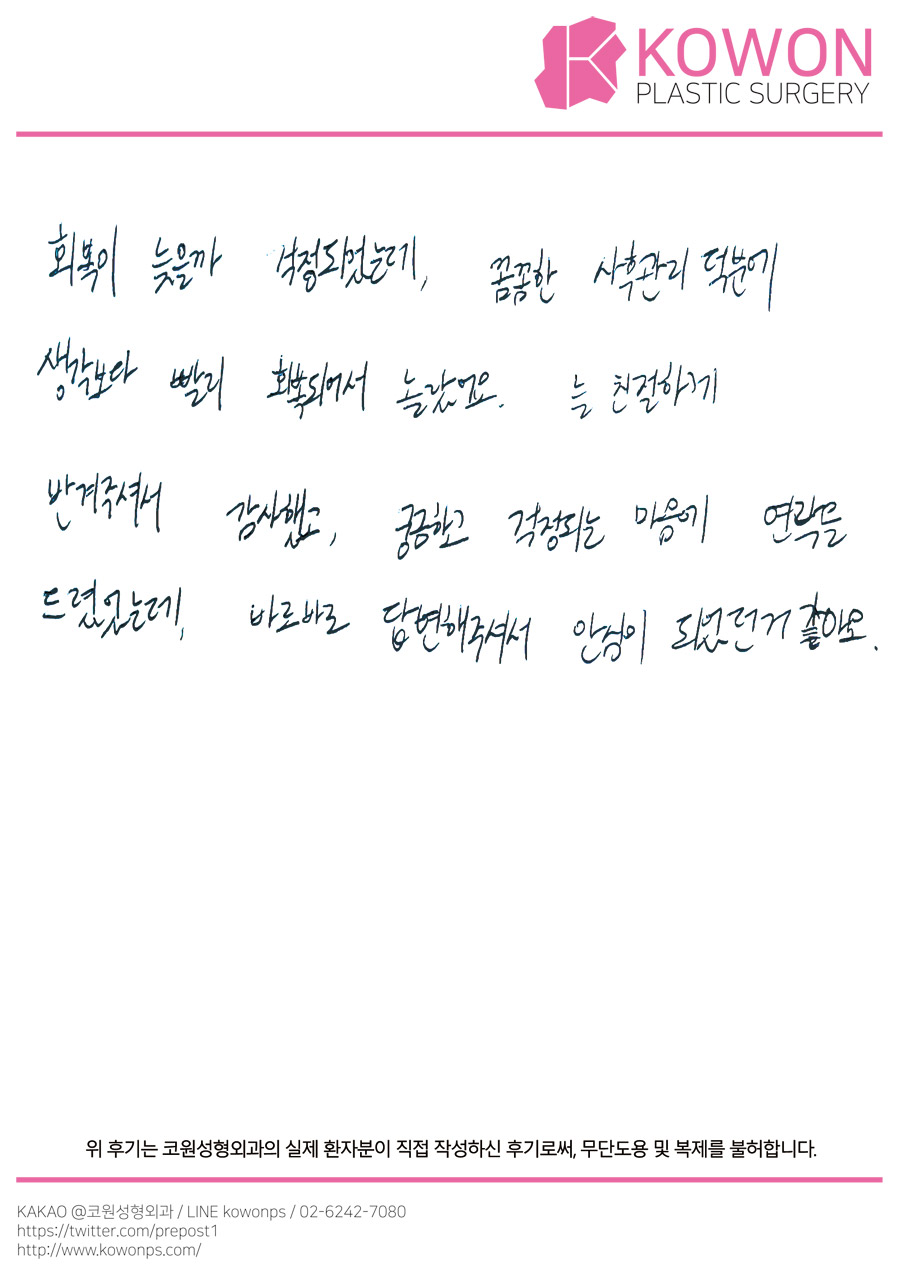 KOWON
PLASTIC SURGERY
회복이 늦을까 걱정되었는데, 꼼꼼한 사후관리 덕분에
생각보다 빨리 회복되어서 놀랐어요. 늘 친절하게
반겨주셔서 감사했고, 궁금하고 걱정되는 마음에 연락을
드렸었는데, 바로바로 답변해주셔서 안심이 되었던거 좋아요.
위 후기는 코원성형외과의 실제 환자분이 직접 작성하신 후기로써, 무단도용 및 복제를 불허합니다.
KAKAO @코원성형외과 / LINE kowonps / 02-6242-7080
https://twitter.com/prepost1
http://www.kowonps.com/